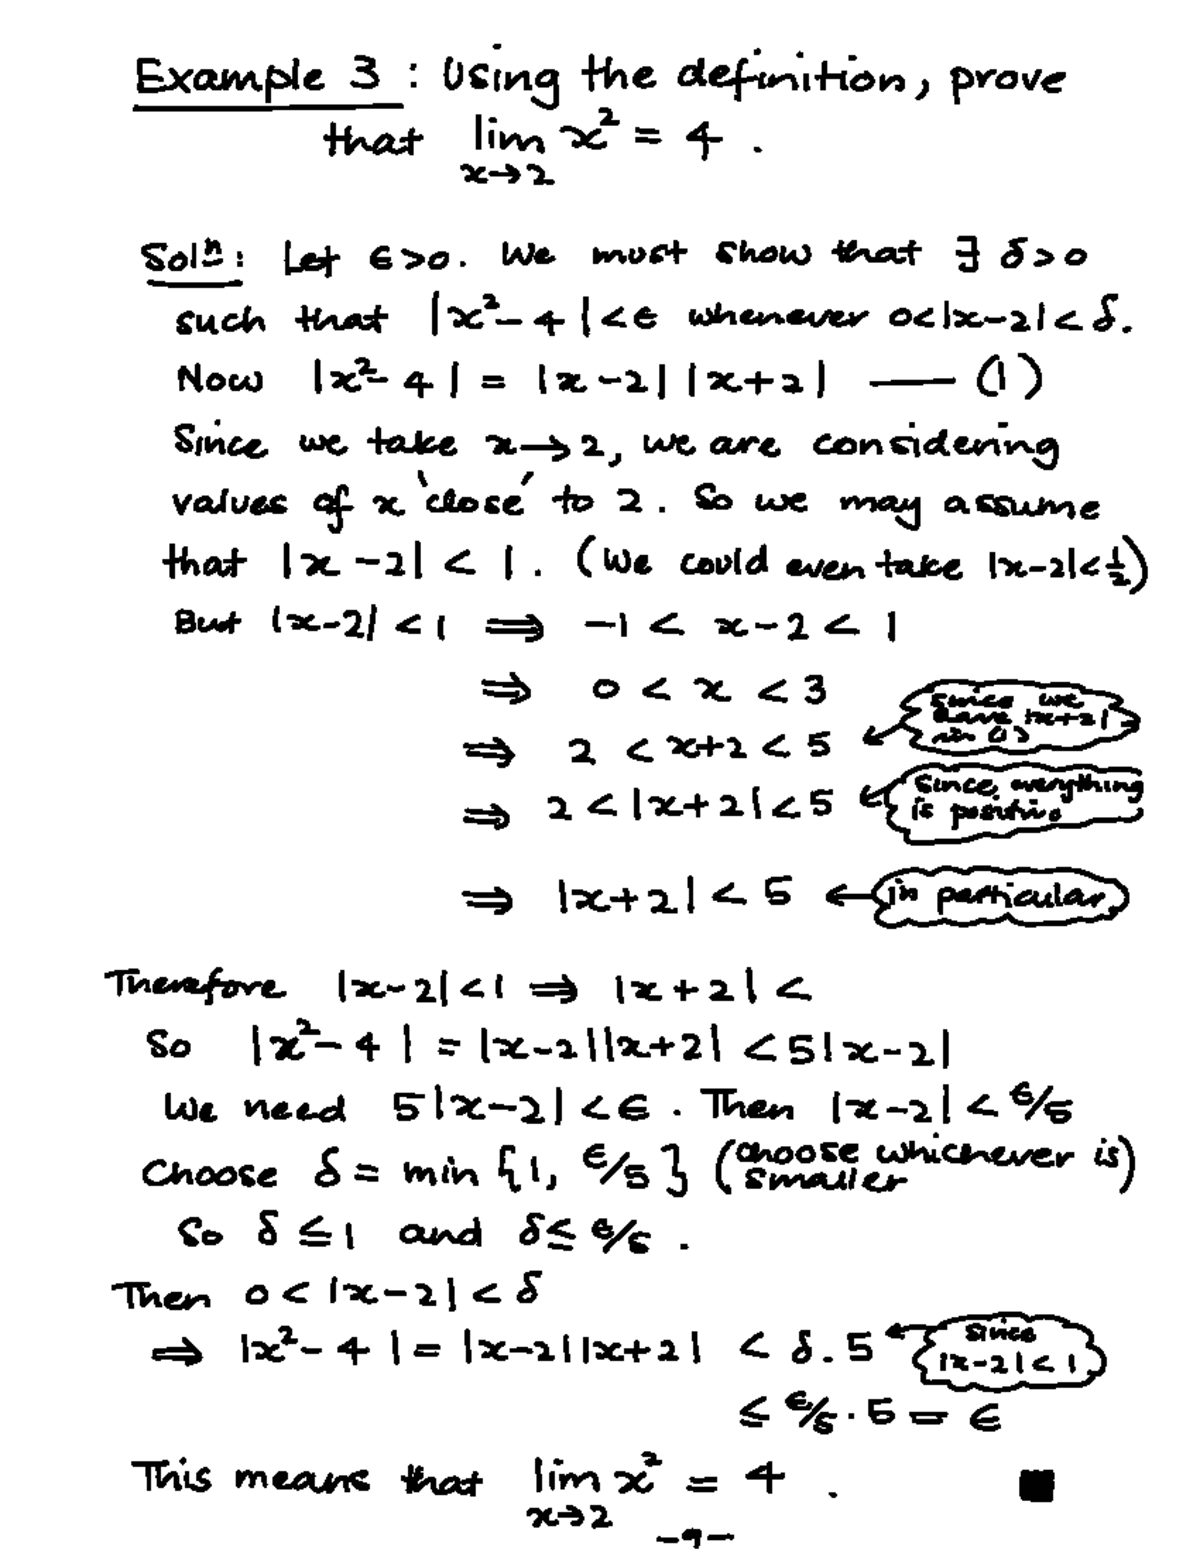 Example 3 : Using the definition, prove
that lim x² = 4 .
x→2
Solⁿ: Let ε>0. We must show that ∃ δ>0
such that |x²-4|<ε whenever 0<|x-2|<δ.
Now |x²-4| = |x-2||x+2| —— (1)
Since we take x→2, we are considering
values of x 'close' to 2. So we may assume
that |x-2| < 1. (We could even take |x-2|<½)
But |x-2| < 1 ⟹ -1 < x-2 < 1
⟹ 0 < x < 3
since we
have |x+2|
in (1)
⟹ 2 < x+2 < 5
⟹ 2 < |x+2| < 5
since everything
is positive
⟹ |x+2| < 5 ← in particular
Therefore |x-2|<1 ⟹ |x+2| <
So |x²-4| = |x-2||x+2| < 5|x-2|
We need 5|x-2| < ε. Then |x-2| < ε/5
Choose δ = min {1, ε/5} (choose whichever is smaller)
So δ ≤ 1 and δ ≤ ε/5 .
Then 0 < |x-2| < δ
⟹ |x²-4| = |x-2||x+2| < δ.5
since
|x-2| < 1
≤ ε/5 . 5 = ε
This means that lim x² = 4 .
x→2
-9-